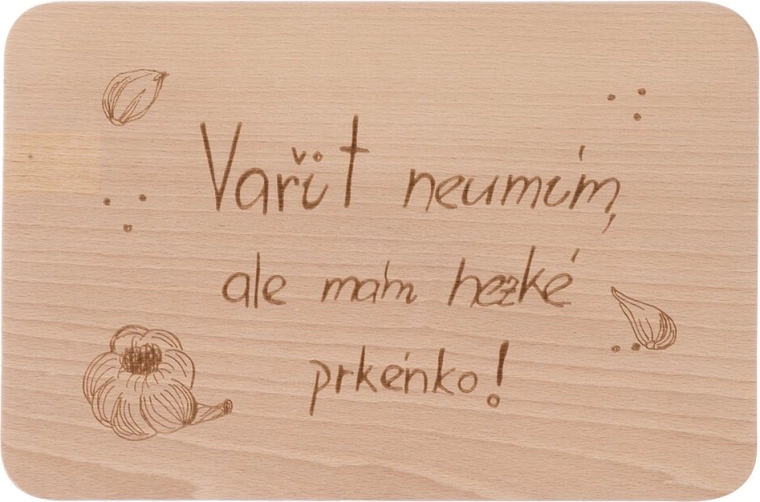 Vařit neumím,
ale mám hezké
prkénko!